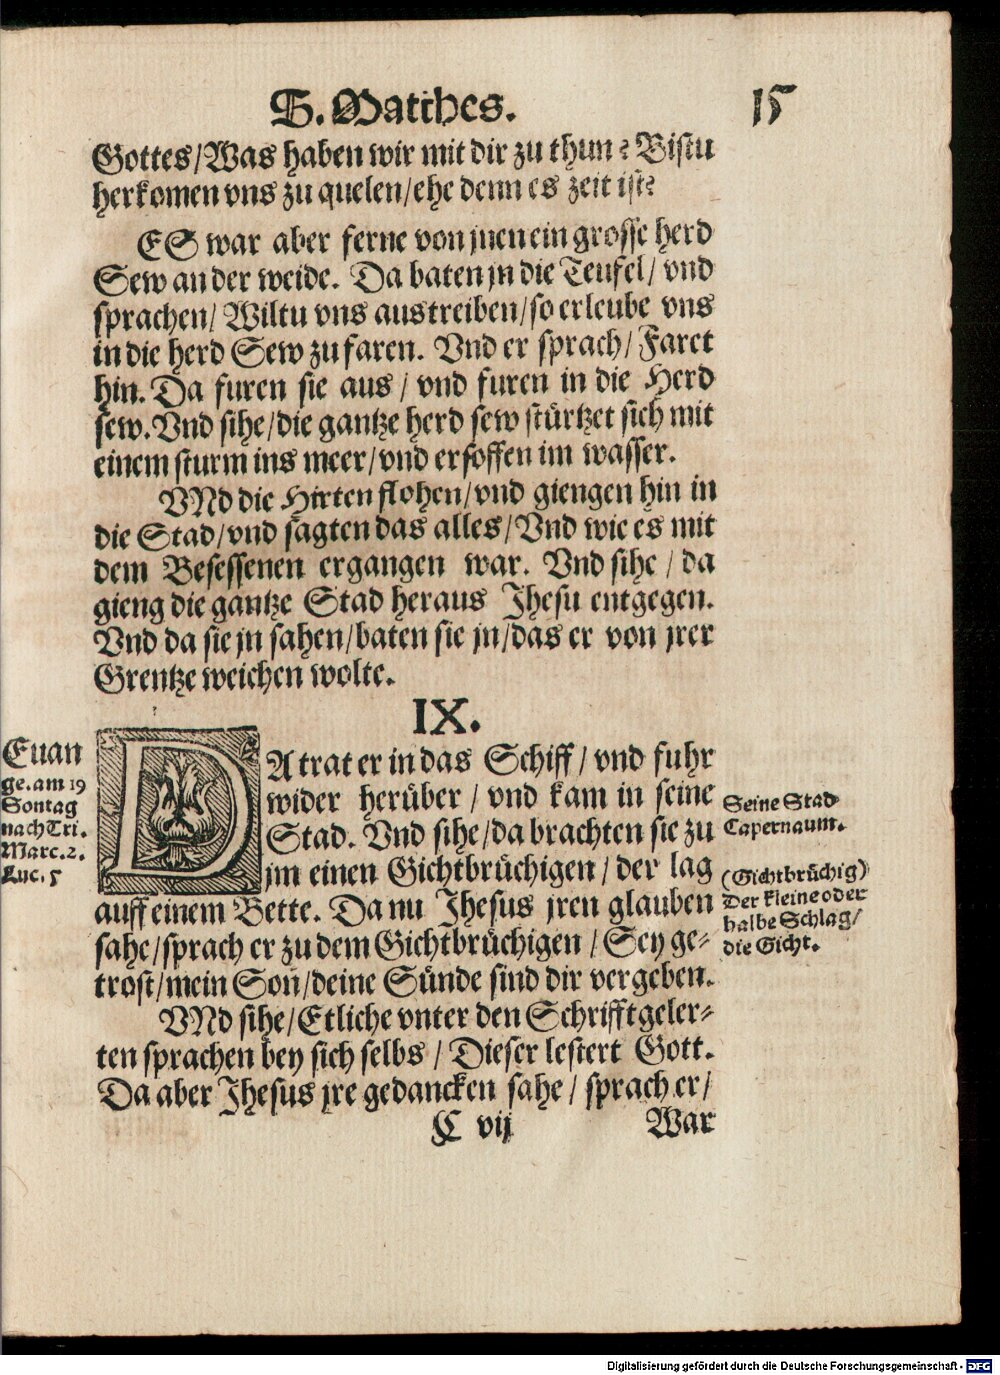 S. Matthes. 15
Gottes/Was haben wir mit dir zu thun? Bistu
herkomen vns zu quelen/ehe denn es zeit ist?
ES war aber ferne von jnen ein grosse herd
Sew an der weide. Da baten jn die Teufel/ vnd
sprachen/ Wiltu vns austreiben/so erleube vns
in die herd Sew zu faren. Vnd er sprach/ Faret
hin. Da furen sie aus/ vnd furen in die Herd
sew. Vnd sihe/die gantze herd sew stürtzet sich mit
einem sturm ins meer/vnd ersoffen im wasser.
VNd die Hirten flohen/vnd giengen hin in
die Stad/vnd sagten das alles/Vnd wie es mit
dem Besessenen ergangen war. Vnd sihe/ da
gieng die gantze Stad heraus Jhesu entgegen.
Vnd da sie jn sahen/baten sie jn/das er von jrer
Grentze weichen wolte.
IX.
Euan
ge. am 19
Sontag
nach Tri.
Marc. 2.
Luc. 5
DA trat er in das Schiff/ vnd fuhr
wider herüber/ vnd kam in seine
Stad. Vnd sihe/da brachten sie zu
jm einen Gichtbrüchigen/ der lag
auff einem Bette. Da nu Jhesus jren glauben
sahe/sprach er zu dem Gichtbrüchigen/ Sey ge-
trost/mein Son/deine Sünde sind dir vergeben.
Seine Stad
Capernaum.
(Gichtbrüchig)
Der kleine oder
halbe Schlag/
die Gicht.
VNd sihe/Etliche vnter den Schrifftgeler-
ten sprachen bey sich selbs/ Dieser lestert Gott.
Da aber Jhesus jre gedancken sahe/ sprach er/
C vij War
Digitalisierung gefördert durch die Deutsche Forschungsgemeinschaft - DFG